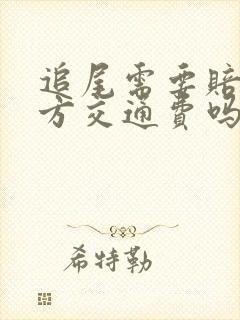 追尾需要赔
方交通费吗
希特勒